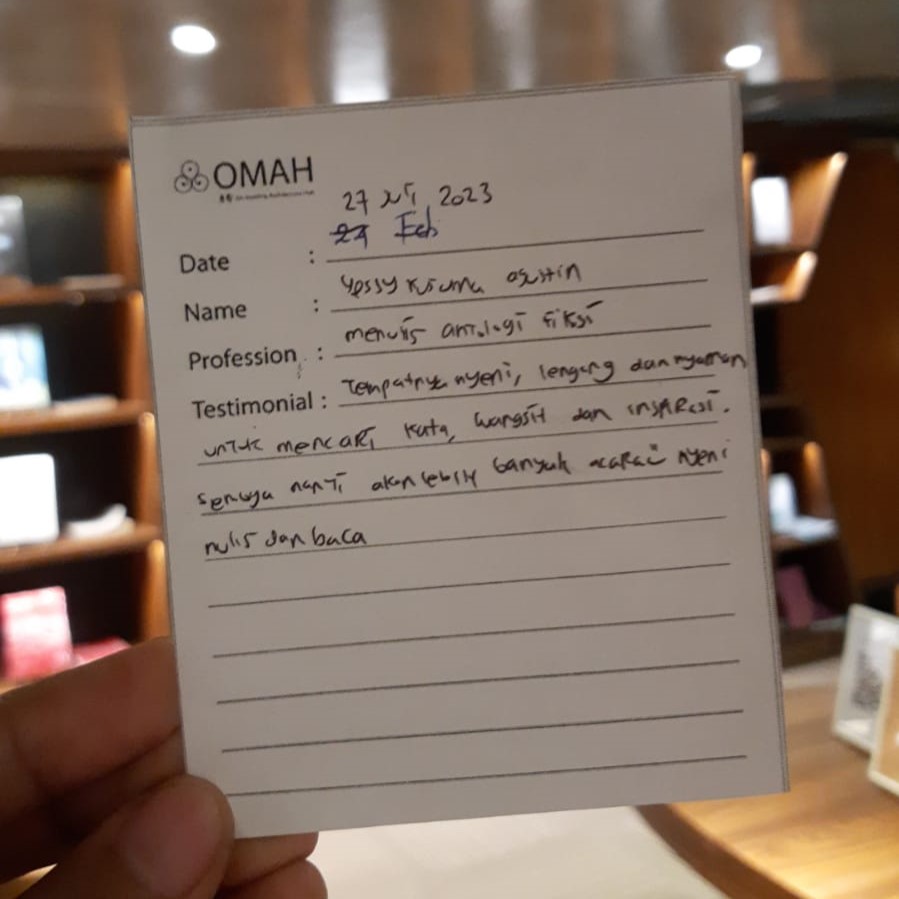 OMAH
27 Juli 2023
27 Feb
Date :
Name : Yessy
Profession : menulis antologi fiksi
Testimonial : Tempatnya nyeni, lengang dan nyaman
untuk mencari kata, wangsit dan inspirasi.
semoga nanti akan lebih banyak acara nyeni
nulis dan baca